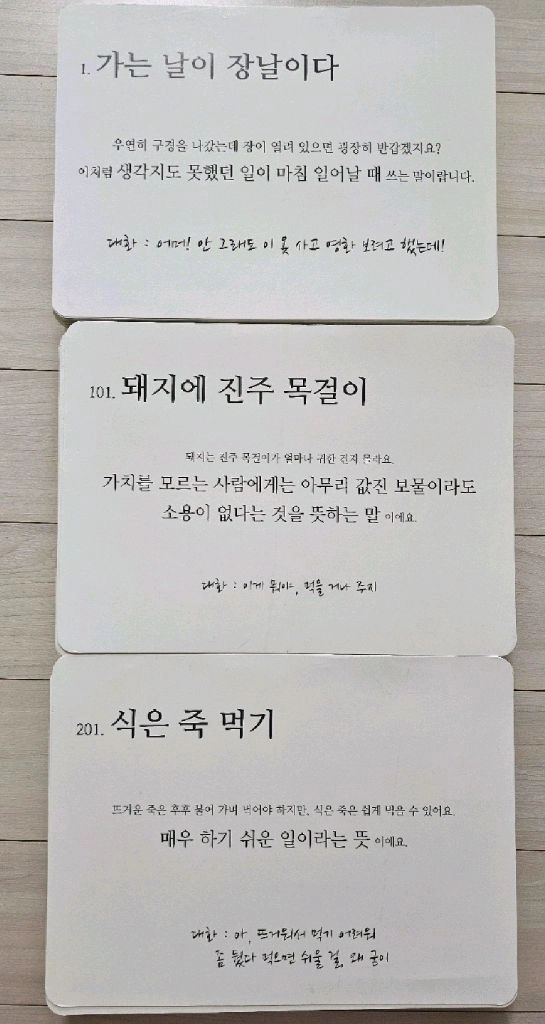 1. 가는 날이 장날이다
우연히 구경을 나갔는데 장이 열려 있으면 굉장히 반갑겠지요?
이처럼 생각지도 못했던 일이 마침 일어날 때 쓰는 말이랍니다.
대화 : 어머! 안 그래도 이 옷 사고 영화 보려고 했는데!
101. 돼지에 진주 목걸이
돼지는 진주 목걸이가 얼마나 귀한 건지 몰라요.
가치를 모르는 사람에게는 아무리 값진 보물이라도
소용이 없다는 것을 뜻하는 말이에요.
대화 : 이게 뭐야, 먹을 거나 주지
201. 식은 죽 먹기
뜨거운 죽은 후후 불어 가며 먹어야 하지만, 식은 죽은 쉽게 먹을 수 있어요.
매우 하기 쉬운 일이라는 뜻이에요.
대화 : 아, 뜨거워서 먹기 어려워
좀 뒀다 먹으면 쉬울 걸, 왜 굳이